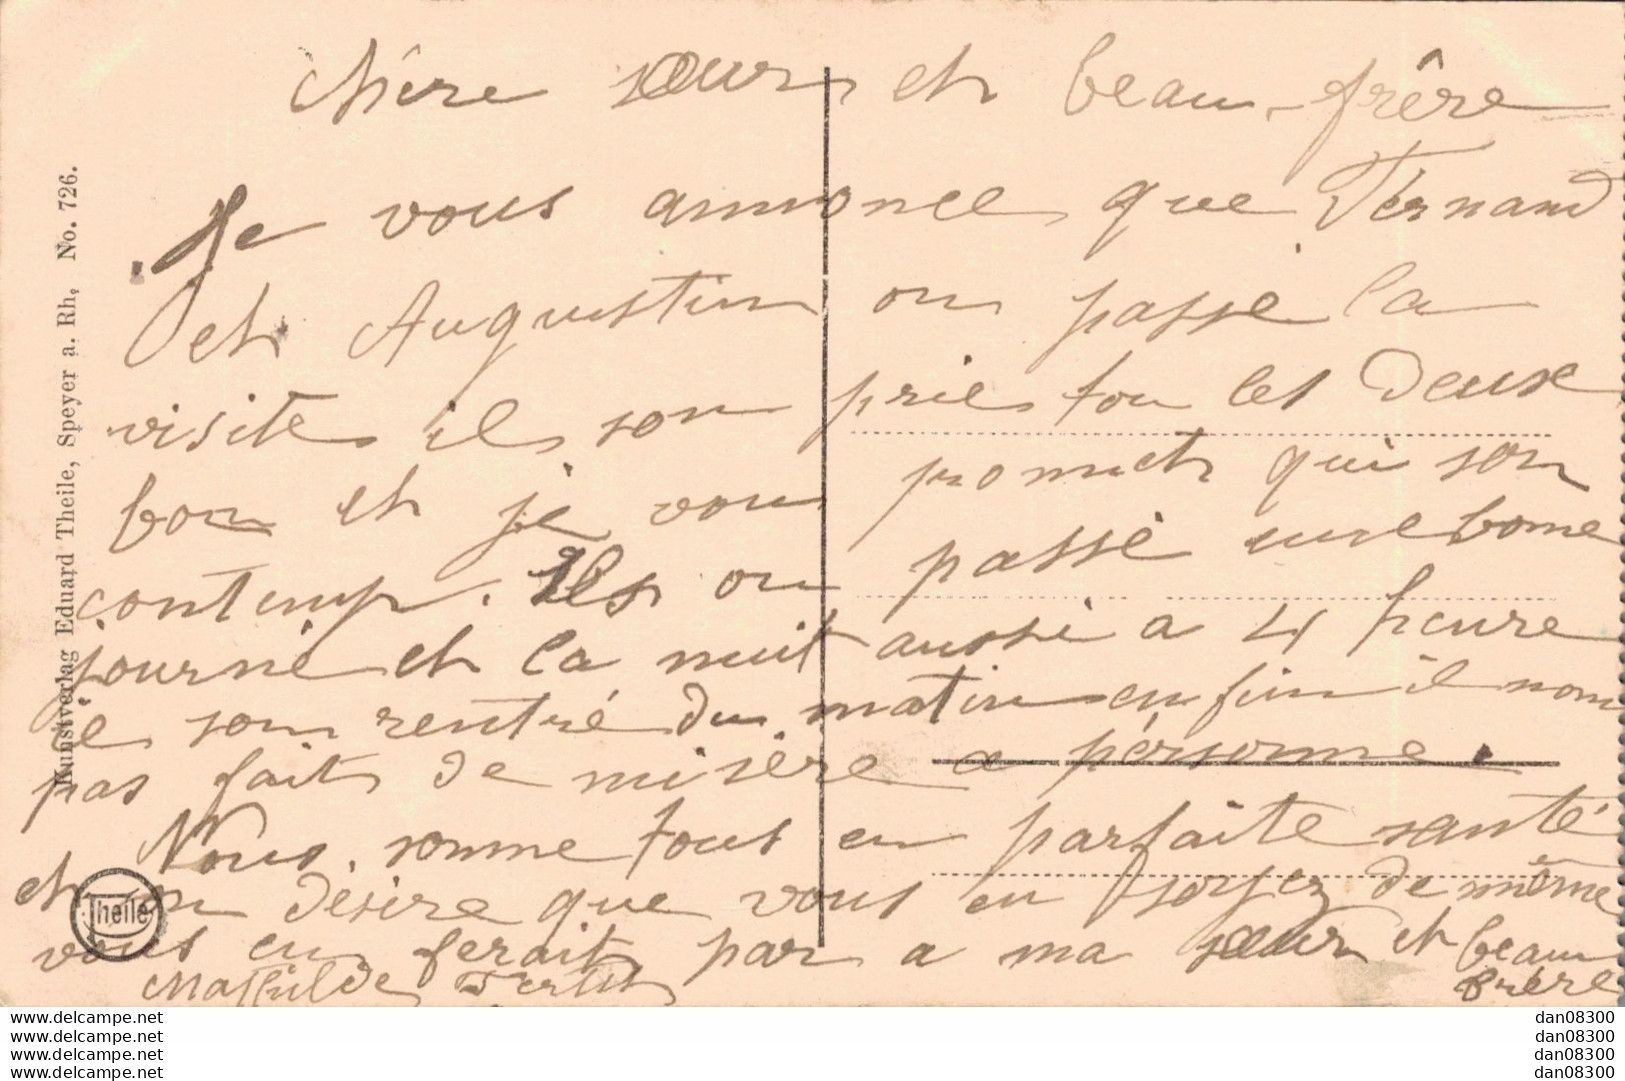 chère sœur et beau-frêre
Je vous annonce que Fèrnand
et Augustin on passé la
visite il son prie tou les deux
bon et je vous promet qui son
contemp. Ils on passé une bonne
journé et la nuit aussi a 4 heure
ie son rentré du matin enfin il nons
pas fait de misère a pèrsonne.
Nous somme tous en parfaite santé
et on désire que vous en soyez de même
vous en ferait par a ma sœur et beau
frère
Mathilde
Kunstverlag Eduard Theile, Speyer a. Rh, No. 726.
Theile
www.delcampe.net
www.delcampe.net
www.delcampe.net
www.delcampe.net
dan08300
dan08300
dan08300
dan08300